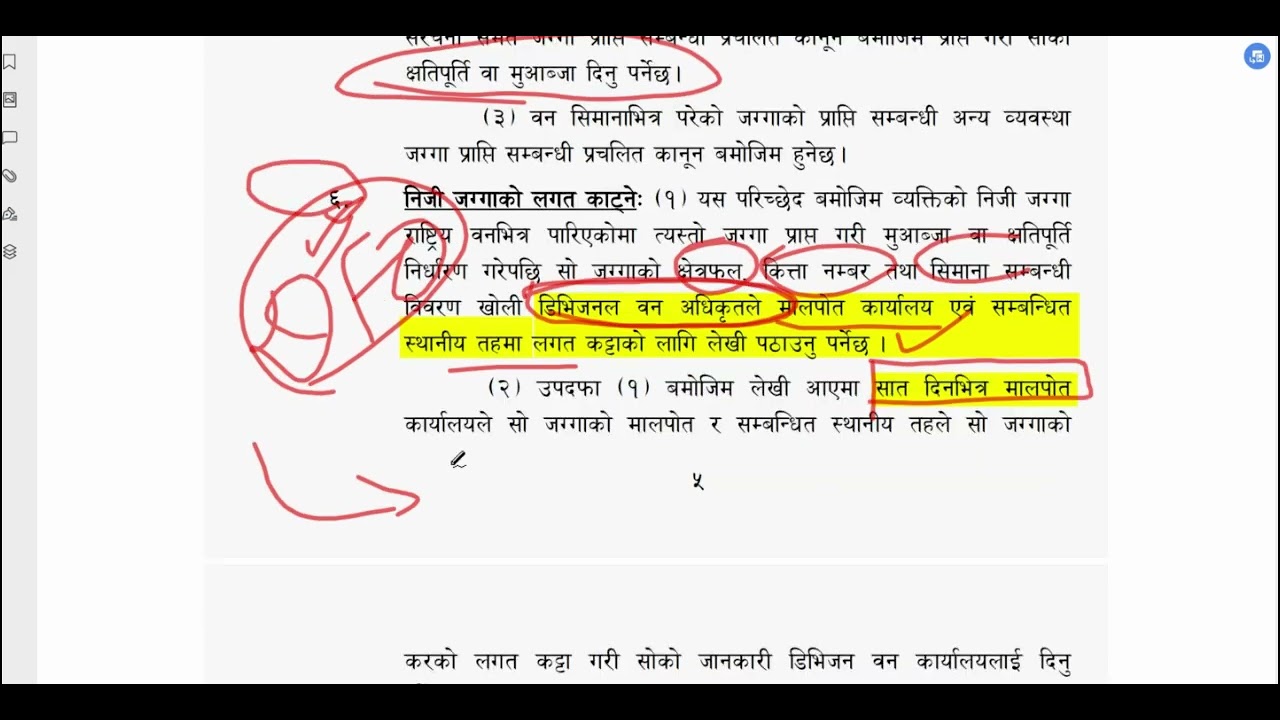 संरचना समेत जग्गा प्राप्ति सम्बन्धी प्रचलित कानून बमोजिम प्राप्त गरी सोको
क्षतिपूर्ति वा मुआब्जा दिनु पर्नेछ।
(३) वन सिमानाभित्र परेको जग्गाको प्राप्ति सम्बन्धी अन्य व्यवस्था
जग्गा प्राप्ति सम्बन्धी प्रचलित कानून बमोजिम हुनेछ।
६. निजी जग्गाको लगत काट्नेः (१) यस परिच्छेद बमोजिम व्यक्तिको निजी जग्गा
राष्ट्रिय वनभित्र पारिएकोमा त्यस्तो जग्गा प्राप्त गरी मुआब्जा वा क्षतिपूर्ति
निर्धारण गरेपछि सो जग्गाको क्षेत्रफल, कित्ता नम्बर तथा सिमाना सम्बन्धी
विवरण खोली डिभिजनल वन अधिकृतले मालपोत कार्यालय एवं सम्बन्धित
स्थानीय तहमा लगत कट्टाको लागि लेखी पठाउनु पर्नेछ ।
(२) उपदफा (१) बमोजिम लेखी आएमा सात दिनभित्र मालपोत
कार्यालयले सो जग्गाको मालपोत र सम्बन्धित स्थानीय तहले सो जग्गाको
५
करको लगत कट्टा गरी सोको जानकारी डिभिजन वन कार्यालयलाई दिनु